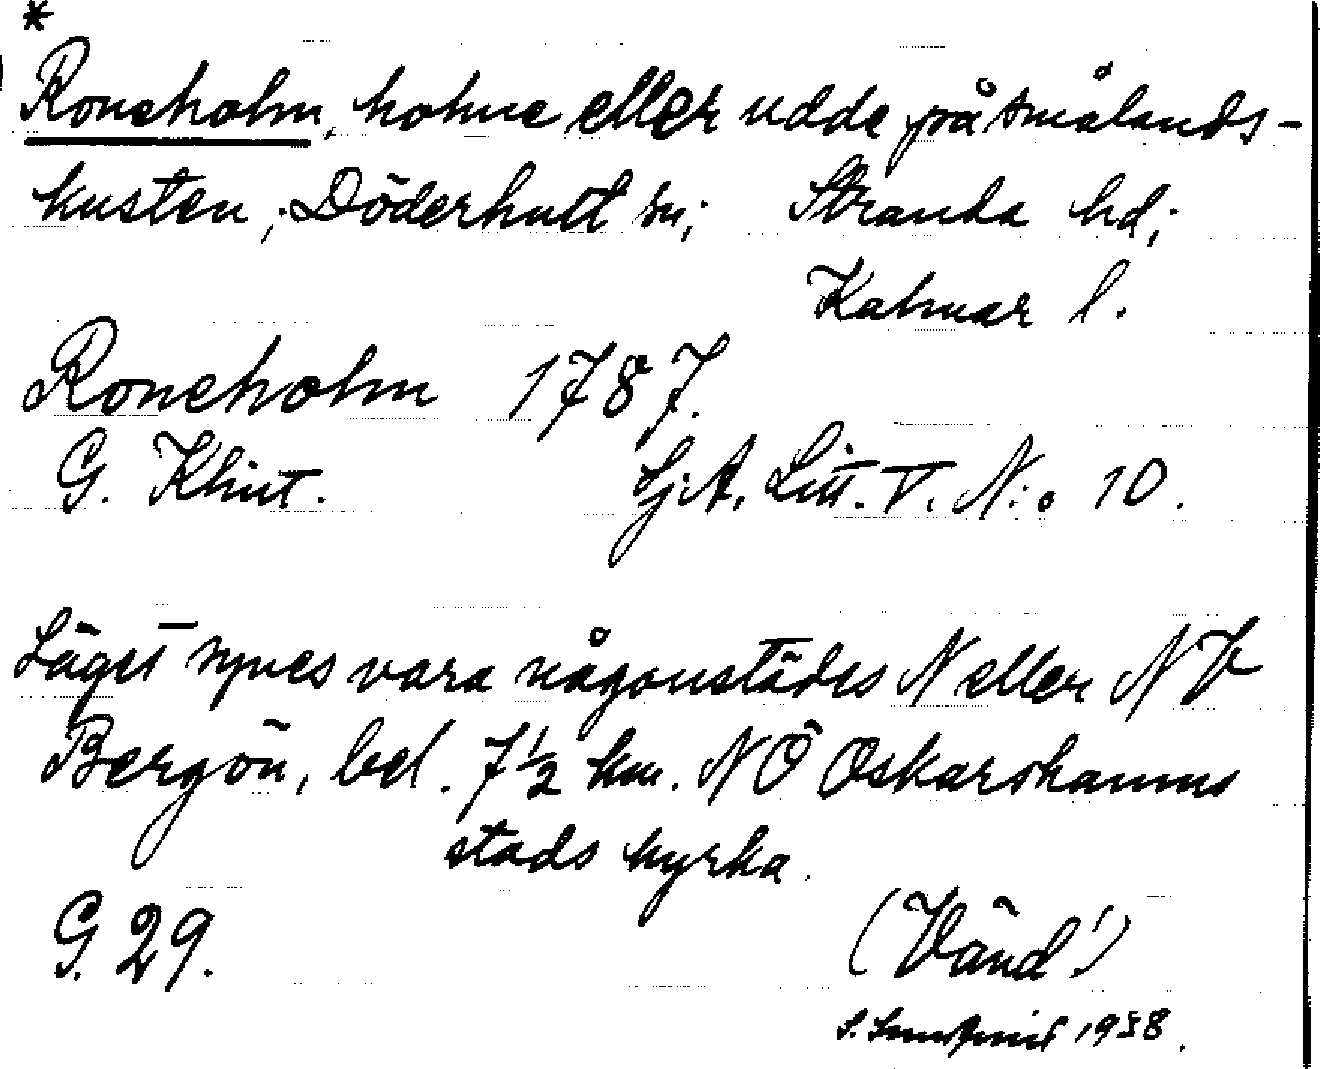 *
Roneholm, holme eller udde på smålands-
kusten; Döderhult sn; Stranda hd;
Kalmar l.
Roneholm 1787.
G. Klint. Sj.A. Litt. V. N:o 10.
Läget synes vara någonstädes N eller NV
Bergön, bel. 7½ km. NÖ Oskarshamns
stads kyrka.
G. 29. (Vänd!)
S. 1938.